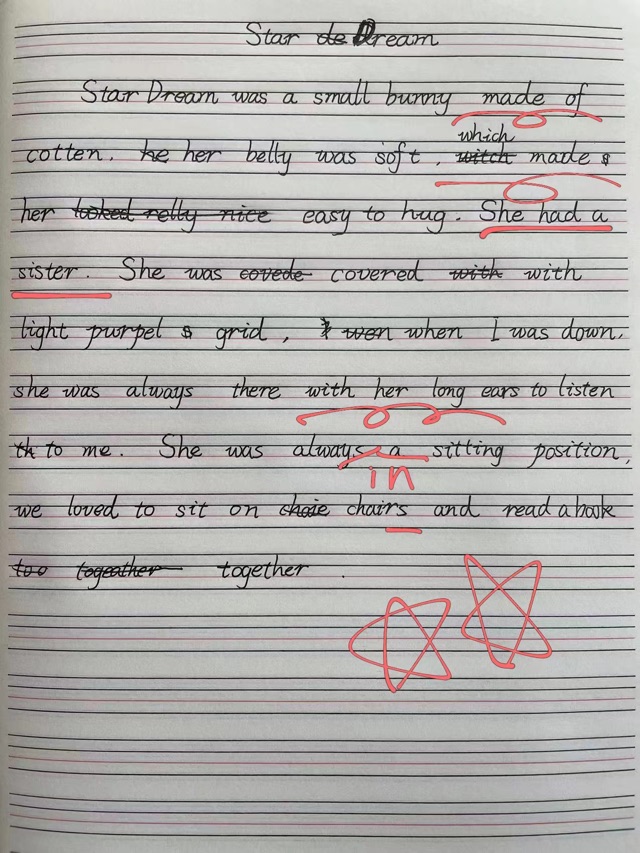 Star de Dream
Star Dream was a small bunny made of
cotten. he her belly was soft, which witch made s
her looked relly nice easy to hug. She had a
sister. She was covede covered with with
light purpel s grid, when I was down.
she was always there with her long ears to listen
th to me. She was always a sitting position,
in
we loved to sit on chaie chairs and read a book
too togeather together.